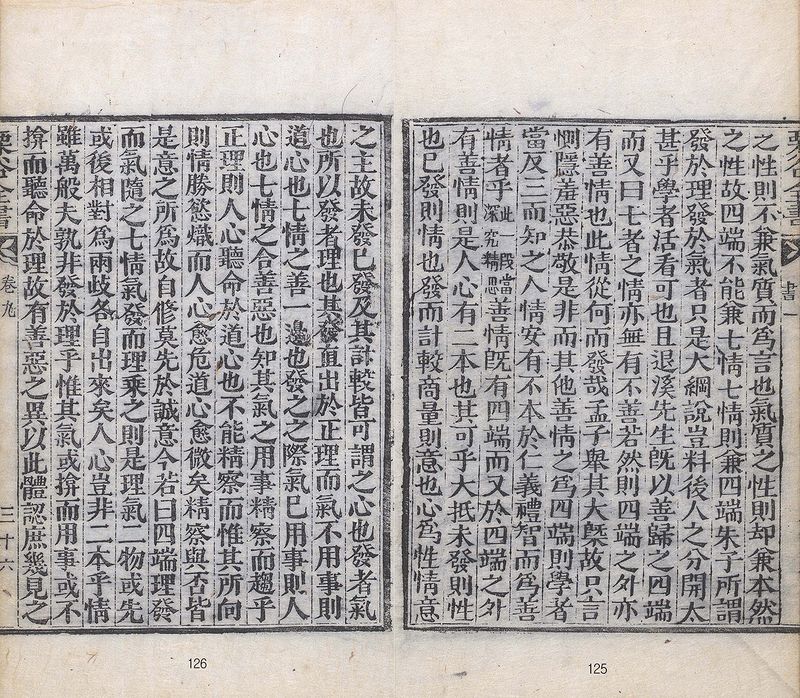 之性則不兼氣質而爲言也氣質之性則却兼本然
之性故四端不能兼七情七情則兼四端朱子所謂
發於理發於氣者只是大綱說豈料後人之分開太
甚乎學者活看可也且退溪先生旣以善歸之四端
而又曰七者之情亦無有不善若然則四端之外亦
有善情也此情從何而發哉孟子舉其大槩故只言
惻隱羞惡恭敬是非而其他善情之爲四端則學者
當反三而知之人情安有不本於仁義禮智而爲善
情者乎此一段當深究精思善情旣有四端而又於四端之外
有善情則是人心有二本也其可乎大抵未發則性
也已發則情也發而計較商量則意也心爲性情意
書一
125
之主故未發已發及其計較皆可謂之心也發者氣
也所以發者理也其發直出於正理而氣不用事則
道心也七情之善一邊也發之之際氣已用事則人
心也七情之合善惡也知其氣之用事精察而趨乎
正理則人心聽命於道心也不能精察而惟其所向
則情勝慾熾而人心愈危道心愈微矣精察與否皆
是意之所爲故自修莫先於誠意今若曰四端理發
而氣隨之七情氣發而理乘之則是理氣二物或先
或後相對爲兩歧各自出來矣人心豈非二本乎情
雖萬般夫孰非發於理乎惟其氣或揜而用事或不
揜而聽命於理故有善惡之異以此體認庶幾見之
栗谷全書
卷九
三十六
126